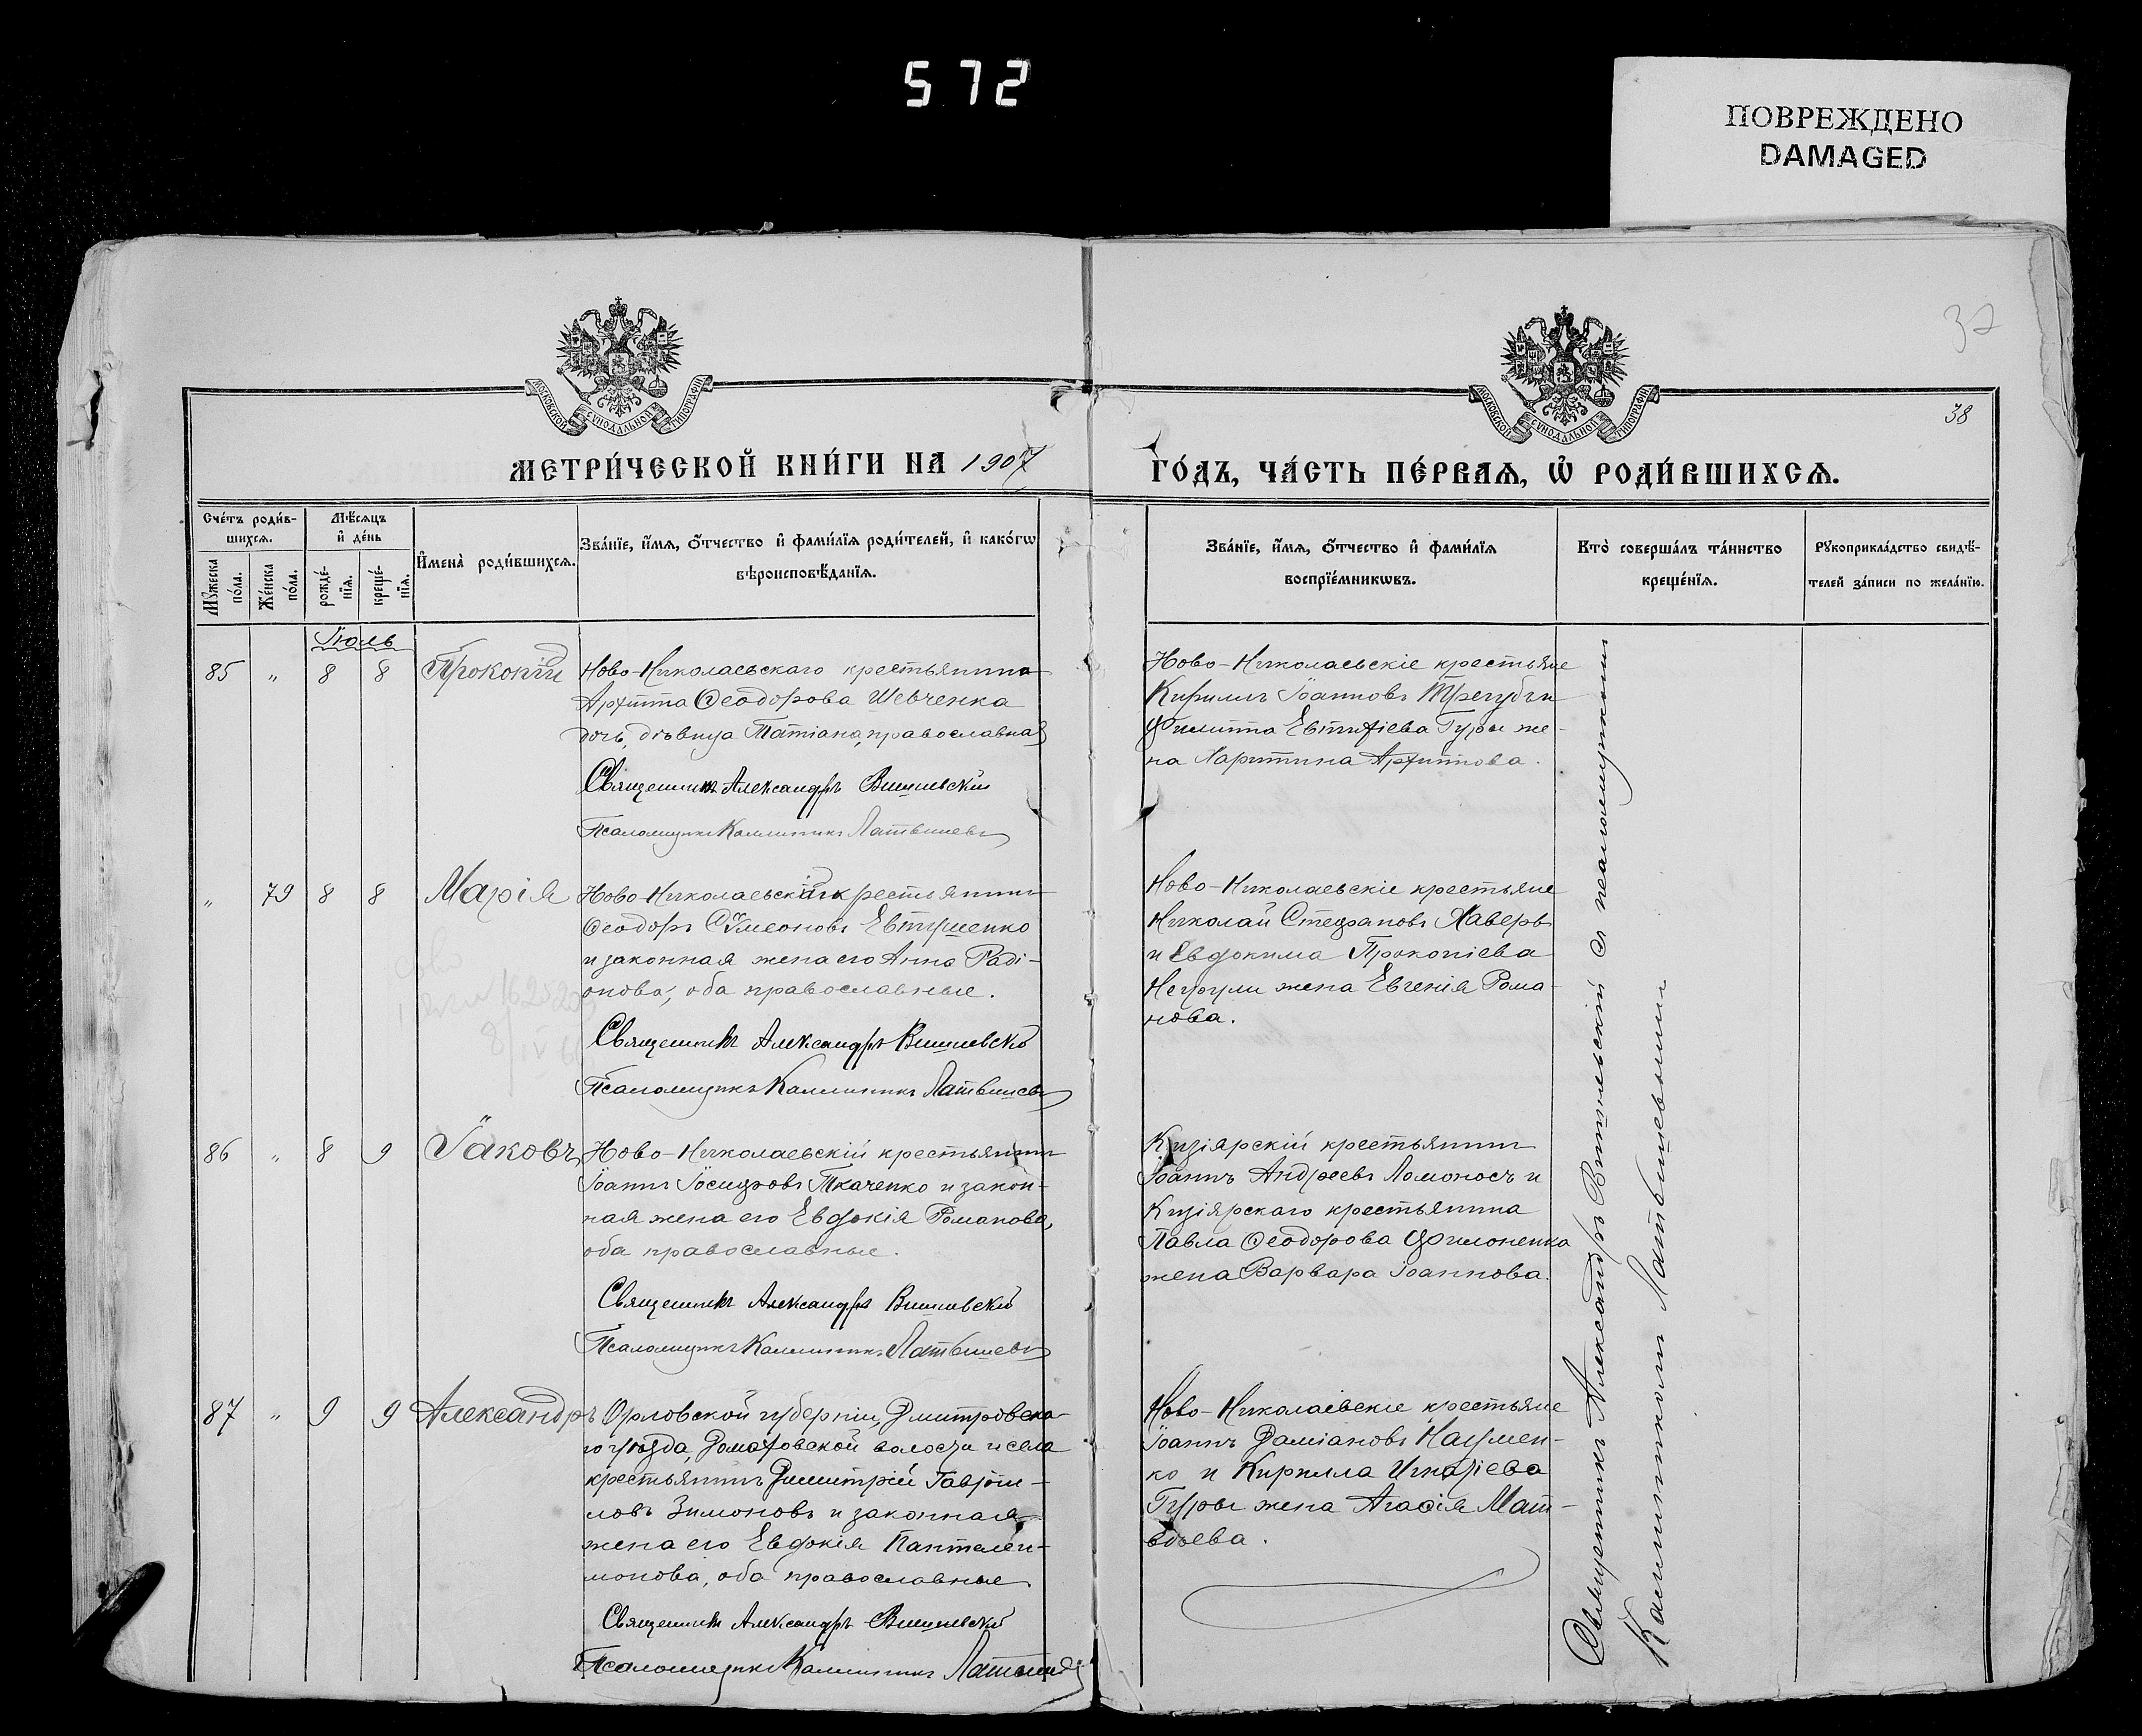 572
ПОВРЕЖДЕНО
DAMAGED
32
38
МОСКОВСКОЙ СѴНОДАЛЬНОЙ ТИПОГРАФІИ
МОСКОВСКОЙ СѴНОДАЛЬНОЙ ТИПОГРАФІИ
МЕТРИ́ЧЕСКОЙ КНИ́ГИ НА 1907
ГО́ДЪ, ЧА́СТЬ ПЕ́РВАѦ, Ѡ҆ РОДИ́ВШИХСѦ.
Сче́тъ роди́в-
шихсѧ.
Мѣ́сѧцъ
и҆ де́нь
Мꙋ́жеска
по́ла.
Же́нска
по́ла.
рожде́-
нїѧ.
креще́-
нїѧ.
И҆мена̀ роди́вшихсѧ.
Зва́нїе, и҆́мѧ, ѻ҆́тчество и҆ фами́лїѧ роди́телей, и҆ како́гѡ
вѣроисповѣ́данїѧ.
Зва́нїе, и҆́мѧ, ѻ҆́тчество и҆ фами́лїѧ
воспрїе́мникѡвъ.
Кто̀ соверша́лъ та́инство
креще́нїѧ.
Рꙋкоприкла́дство свидѣ́-
телей за́писи по жела́нїю.
Іюль
85 " 8 8 Прокопій
Ново-Николаевскаго крестьянина
Архиппа Ѳеодорова Шевченка
дочь, дѣвица Татіана, православная
Священникъ Александръ Вишневскій
Псаломщикъ Каллиникъ Латвишевъ
Ново-Николаевскіе крестьяне
Кириллъ Іоанновъ Трегубъ и
Филиппа Евтихіева Гуры же-
на Харитина Архиппова.
" 79 8 8 Марія
Ново-Николаевскій крестьянинъ
Ѳеодоръ Сѵмеоновъ Евтушенко
и законная жена его Анна Раді-
онова, оба православные.
Священникъ Александръ Вишневскій
Псаломщикъ Каллиникъ Латвишевъ
Ново-Николаевскіе крестьяне
Николай Стефановъ Хаверь
и Евдокима Прокопіева
жена Евгенія Рома-
нова.
86 " 8 9 Іаковъ
Ново-Николаевскій крестьянинъ
Іоаннъ Іосифовъ Ткаченко и закон-
ная жена его Евдокія Романова,
оба православные.
Священникъ Александръ Вишневскій
Псаломщикъ Каллиникъ Латвишевъ
Кизіярскій крестьянинъ
Іоаннъ Андреевъ Ломоносъ и
Кизіярскаго крестьянина
Павла Ѳеодорова Филоненка
жена Варвара Іоаннова.
87 " 9 9 Александръ
Орловской губерніи, Дмитровска-
го уѣзда, Домаховской волости и села
крестьянинъ Димитрій Гавріи-
ловъ Зимоновъ и законная
жена его Евдокія Пантелеи-
монова, оба православные
Священникъ Александръ Вишневскій
Псаломщикъ Каллиникъ Латвишевъ
Ново-Николаевскіе крестьяне
Іоаннъ Даміановъ Наумен-
ко и Кирилла Игнатіева
Гуры жена Агаѳія Мат-
вѣева.
Священникъ Александръ Вишневскій съ псаломщикомъ
Каллиникомъ Латвишевымъ